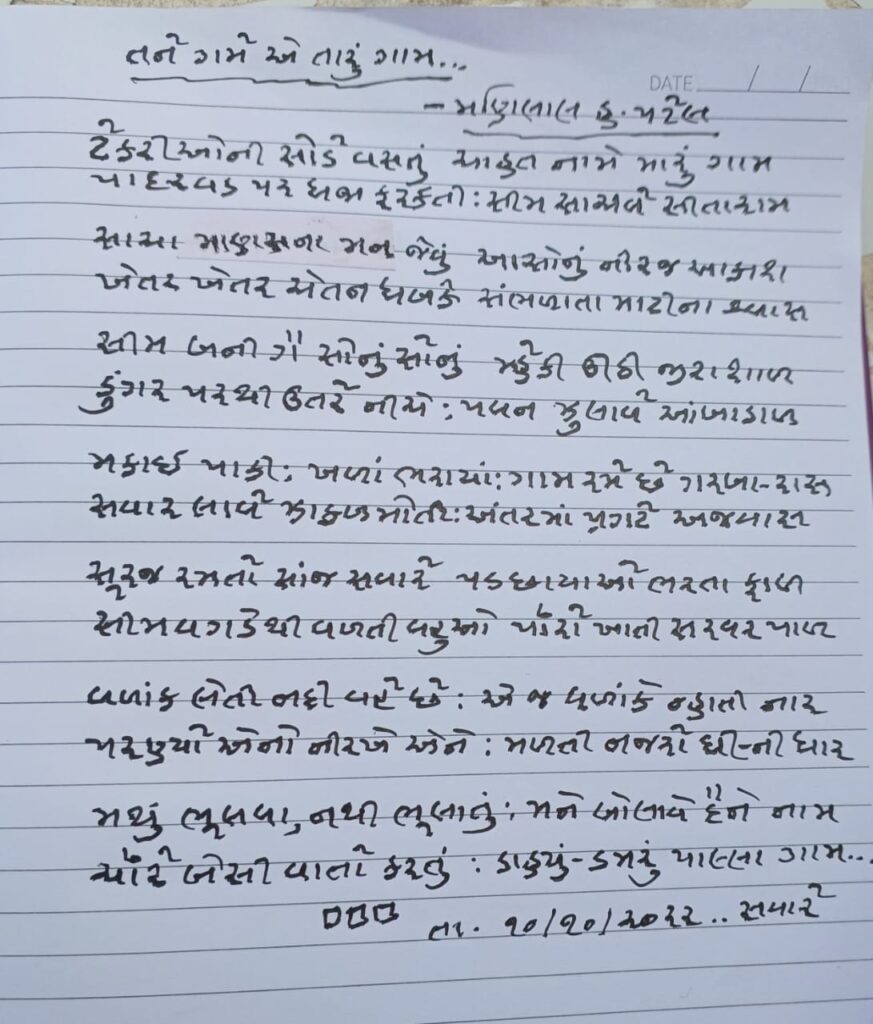 તને ગમે એ તારું ગામ...
DATE / /
- મણિલાલ હ. પટેલ
ટેકરીઓની સોડે વસતું આકૃત નામે મારું ગામ
પાદરવડ પર ધજા ફરકતી : સીમ સાચવે સીતારામ
સાચા માણસના મન જેવું આસોનું નીરજ આકાશ
ખેતર ખેતર ચેતન ધબકે સંભળાતા માટીના શ્વાસ
સીમ બની ગૈ સોનું સોનું મ્હેકી ઊઠી જીરાશાળ
ડુંગર પરથી ઉતરે નીચે : પવન ઝુલાવે આંબાડાળ
મકાઈ પાકી : ખળાં ભરાયાં : ગામ રમે છે ગરબા-રાસ
સવાર લાવે ઝાકળમોતી : અંતરમાં પ્રગટે અજવાસ
સૂરજ રમતો સાંજ સવારે પડછાયાઓ ભરતા ફાળ
સીમવગડેથી વળતી વહુઓ પોરો ખાતી સરવર પાળ
વળાંક લેતી નદી વહે છે : એ જ વળાંકે ન્હાતી નાર
પરણ્યો એનો નીરખે એને : મળતી નજરો ઘી-ની ધાર
મથું ભૂલવા, નથી ભૂલાતું : મને બોલાવે હૈને નામ
ચોરે બેસી વાતો કરતું : ડાહ્યું-ડમરું પાલ્લા ગામ...
તા. ૧૦/૧૦/૨૦૨૨.. સવારે